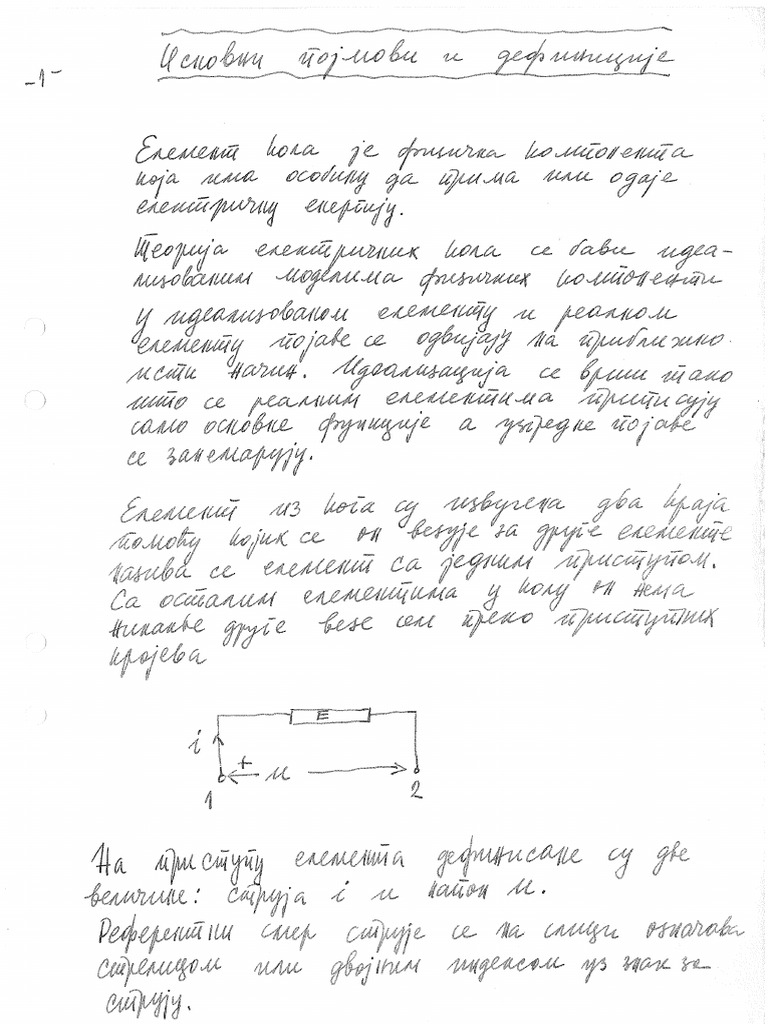 -1-
Основни појмови и дефиниције
Елемент кола је физичка компонента
која има особину да прима или одаје
електричну енергију.
Теорија електричних кола се бави идеа-
лизованим моделима физичких компоненти
у идеализованом елементу и реалном
елементу појаве се одвијају на приближно
исти начин. Идеализација се врши тако
што се реалним елементима приписују
само основне функције а узгредне појаве
се занемарују.
Елемент из кога су извучена два краја
помоћу којих се он везује за друге елементе
назива се елемент са једним приступом.
Са осталим елементима у колу он нема
никакве друге везе сем преко приступних
крајева
E
i
+ u
1 2
На приступу елемента дефинисане су две
величине: струја i и напон u.
Референтни смер струје се на слици означава
стрелицом или двојним индексом уз знак за
струју.